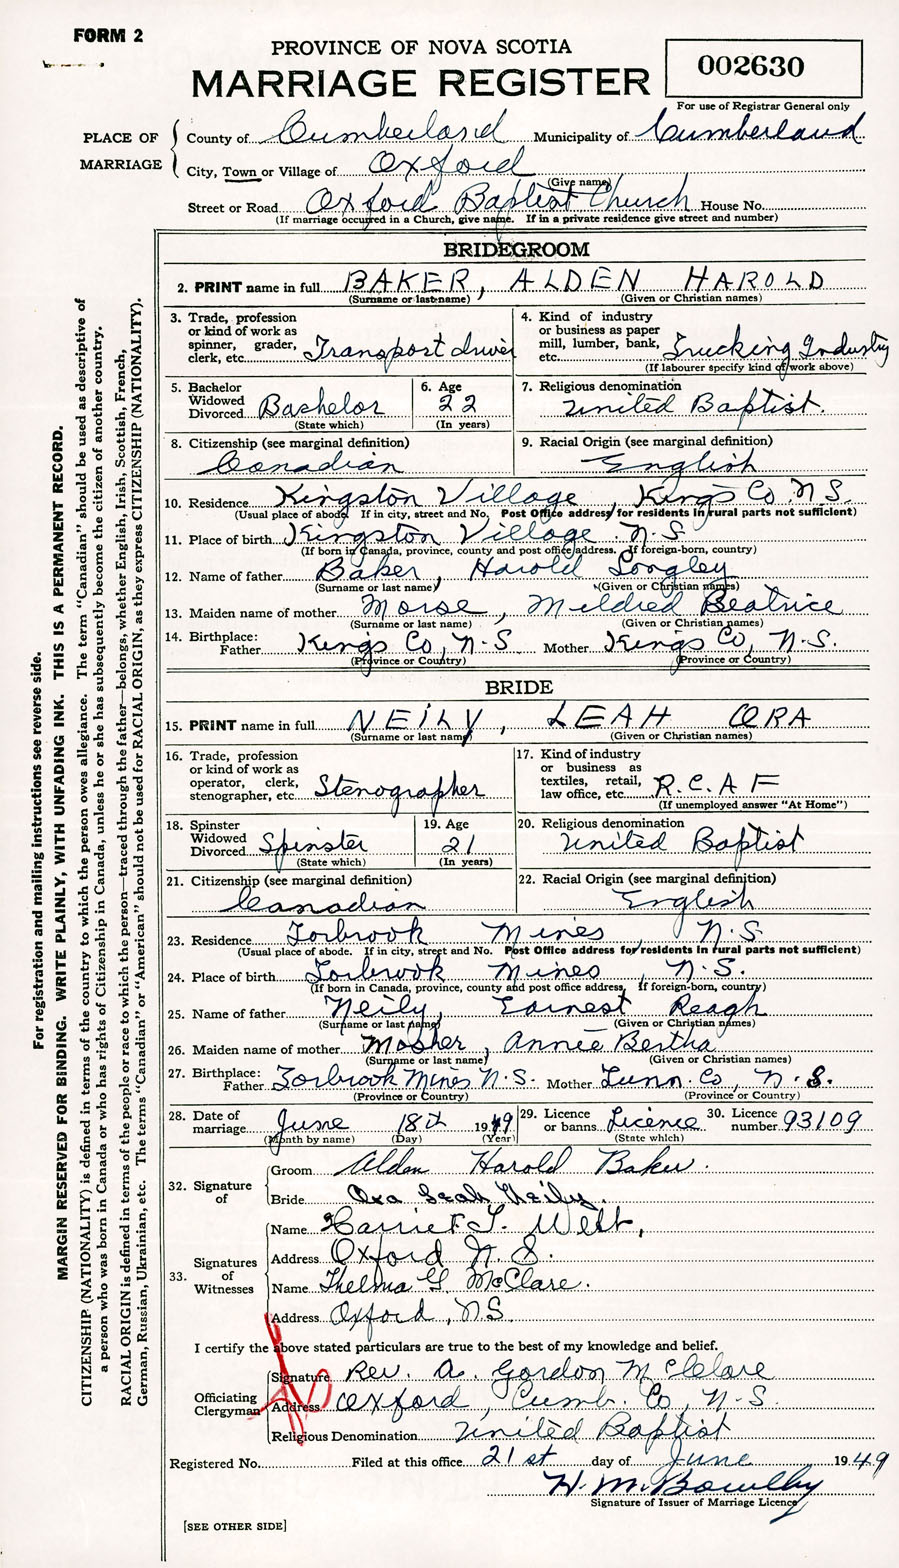 FORM 2
PROVINCE OF NOVA SCOTIA
MARRIAGE REGISTER
002630
For use of Registrar General only
PLACE OF MARRIAGE
County of Cumberland Municipality of Cumberland
City, Town or Village of Oxford
(Give name)
Street or Road Oxford Baptist Church House No.
(If marriage occurred in a Church, give name. If in a private residence give street and number)
BRIDEGROOM
2. PRINT name in full BAKER, ALDEN HAROLD
(Surname or last name) (Given or Christian names)
3. Trade, profession or kind of work as spinner, grader, clerk, etc. Transport driver
4. Kind of industry or business as paper mill, lumber, bank, etc. Trucking Industry
(If labourer specify kind of work above)
5. Bachelor Widowed Divorced Bachelor
(State which)
6. Age 22
(In years)
7. Religious denomination United Baptist.
8. Citizenship (see marginal definition) Canadian
9. Racial Origin (see marginal definition) English
10. Residence Kingston Village, Kings Co. N.S.
(Usual place of abode. If in city, street and No. Post Office address for residents in rural parts not sufficient)
11. Place of birth Kingston Village. N.S
(If born in Canada, province, county and post office address. If foreign-born, country)
12. Name of father Baker, Harold Longley
(Surname or last name) (Given or Christian names)
13. Maiden name of mother Morse, Mildred Beatrice
(Surname or last name) (Given or Christian names)
14. Birthplace: Father Kings Co, N-S Mother Kings Co, N.S.
(Province or Country) (Province or Country)
BRIDE
15. PRINT name in full NEILY, LEAH ORA
(Surname or last name) (Given or Christian names)
16. Trade, profession or kind of work as operator, clerk, stenographer, etc. Stenographer
17. Kind of industry or business as textiles, retail, law office, etc. R.C.A F
(If unemployed answer "At Home")
18. Spinster Widowed Divorced Spinster
(State which)
19. Age 21
(In years)
20. Religious denomination United Baptist
21. Citizenship (see marginal definition) Canadian
22. Racial Origin (see marginal definition) English
23. Residence Torbrook Mines, N.S.
(Usual place of abode. If in city, street and No. Post Office address for residents in rural parts not sufficient)
24. Place of birth Torbrook Mines, N.S.
(If born in Canada, province, county and post office address. If foreign-born, country)
25. Name of father Neily, Earnest Reagh
(Surname or last name) (Given or Christian names)
26. Maiden name of mother Mosher, Annie Bertha
(Surname or last name) (Given or Christian names)
27. Birthplace: Father Torbrook Mines N.S. Mother Lunn. Co, N.S.
(Province or Country) (Province or Country)
28. Date of marriage June 18th 1949
(Month by name) (Day) (Year)
29. Licence or banns Licence
(State which)
30. Licence number 93109
32. Signature of
Groom Alden Harold Baker.
Bride Ora Leah Neily.
33. Signatures of Witnesses
Name Harriet L. Welt,
Address Oxford N.S.
Name Thelma G McClare.
Address Oxford, N.S.
I certify the above stated particulars are true to the best of my knowledge and belief.
Officiating Clergyman
Signature Rev. A. Gordon McClare
Address Oxford, Cumb. Co, N-S.
Religious Denomination United Baptist
Registered No. Filed at this office 21st day of June 1949
H. M. Bowlby
Signature of Issuer of Marriage Licence
[SEE OTHER SIDE]
For registration and mailing instructions see reverse side.
MARGIN RESERVED FOR BINDING. WRITE PLAINLY, WITH UNFADING INK. THIS IS A PERMANENT RECORD.
CITIZENSHIP (NATIONALITY) is defined in terms of the country to which the person owes allegiance. The term "Canadian" should be used as descriptive of
a person who was born in Canada or who has rights of Citizenship in Canada, unless he or she has subsequently become the citizen of another country.
RACIAL ORIGIN is defined in terms of the people or race to which the person—traced through the father—belongs, whether English, Irish, Scottish, French,
German, Russian, Ukrainian, etc. The terms "Canadian" or "American" should not be used for RACIAL ORIGIN, as they express CITIZENSHIP (NATIONALITY).